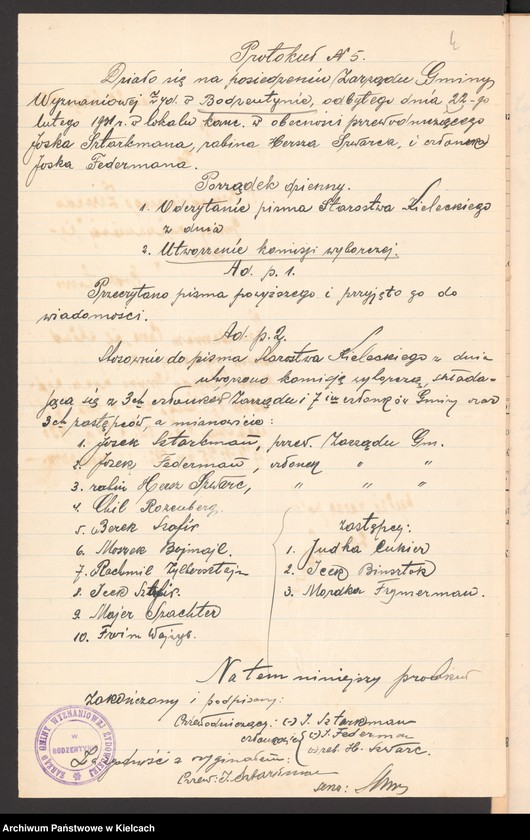 4
Protokuł N 5.
Działo się na posiedzeniu Zarządu Gminy
Wyznaniowej Żyd. w Bodzentynie, odbytego dnia 22-go
lutego 1931 r. w lokalu kanc. w obecności przewodniczącego
Joska Sztarkmana, rabina Hersza Szwarca, i członka
Joska Federmana.
Porządek dzienny.
1. Odczytanie pisma Starostwa Kieleckiego
z dnia
2. Utworzenie komisji wyborczej.
Ad. p. 1.
Przeczytano pisma powyższego i przyjęto go do
wiadomości.
Ad. p. 2.
Stosownie do pisma Starostwa Kieleckiego z dnia
utworzono komisję wyborczą, składa-
jącą się z 3ch członków Zarządu i 7iu członków Gminy oraz
3ch zastępców, a mianowicie:
1. Josek Sztarkman, przew. Zarządu Gm.
2. Josek Federman, członek " "
3. rabin Hersz Szwarc, " " "
4. Chil Rozenberg.
5. Berek Szafir
6. Moszek Bojmajl.
7. Rachmil Zylbersztajn
8. Icek Szafir.
9. Majer Szachter
10. Froim Wajzyb.
Zastępcy:
1. Judka Cukier
2. Icek Binsztok
3. Mordka Frymerman.
Na tem niniejszy protokuł
zakończony i podpisany:
Przewodniczący: (-) J. Sztarkman
członkowie (-) J. Federman
(-) rab. H. Szwarc.
Zgodność z oryginałem:
Przew. J. Sztarkman
sekr:
ZARZĄD GMINY WYZNANIOWEJ ŻYDOWSKIEJ
W
BODZENTYNIE
Archiwum Państwowe w Kielcach